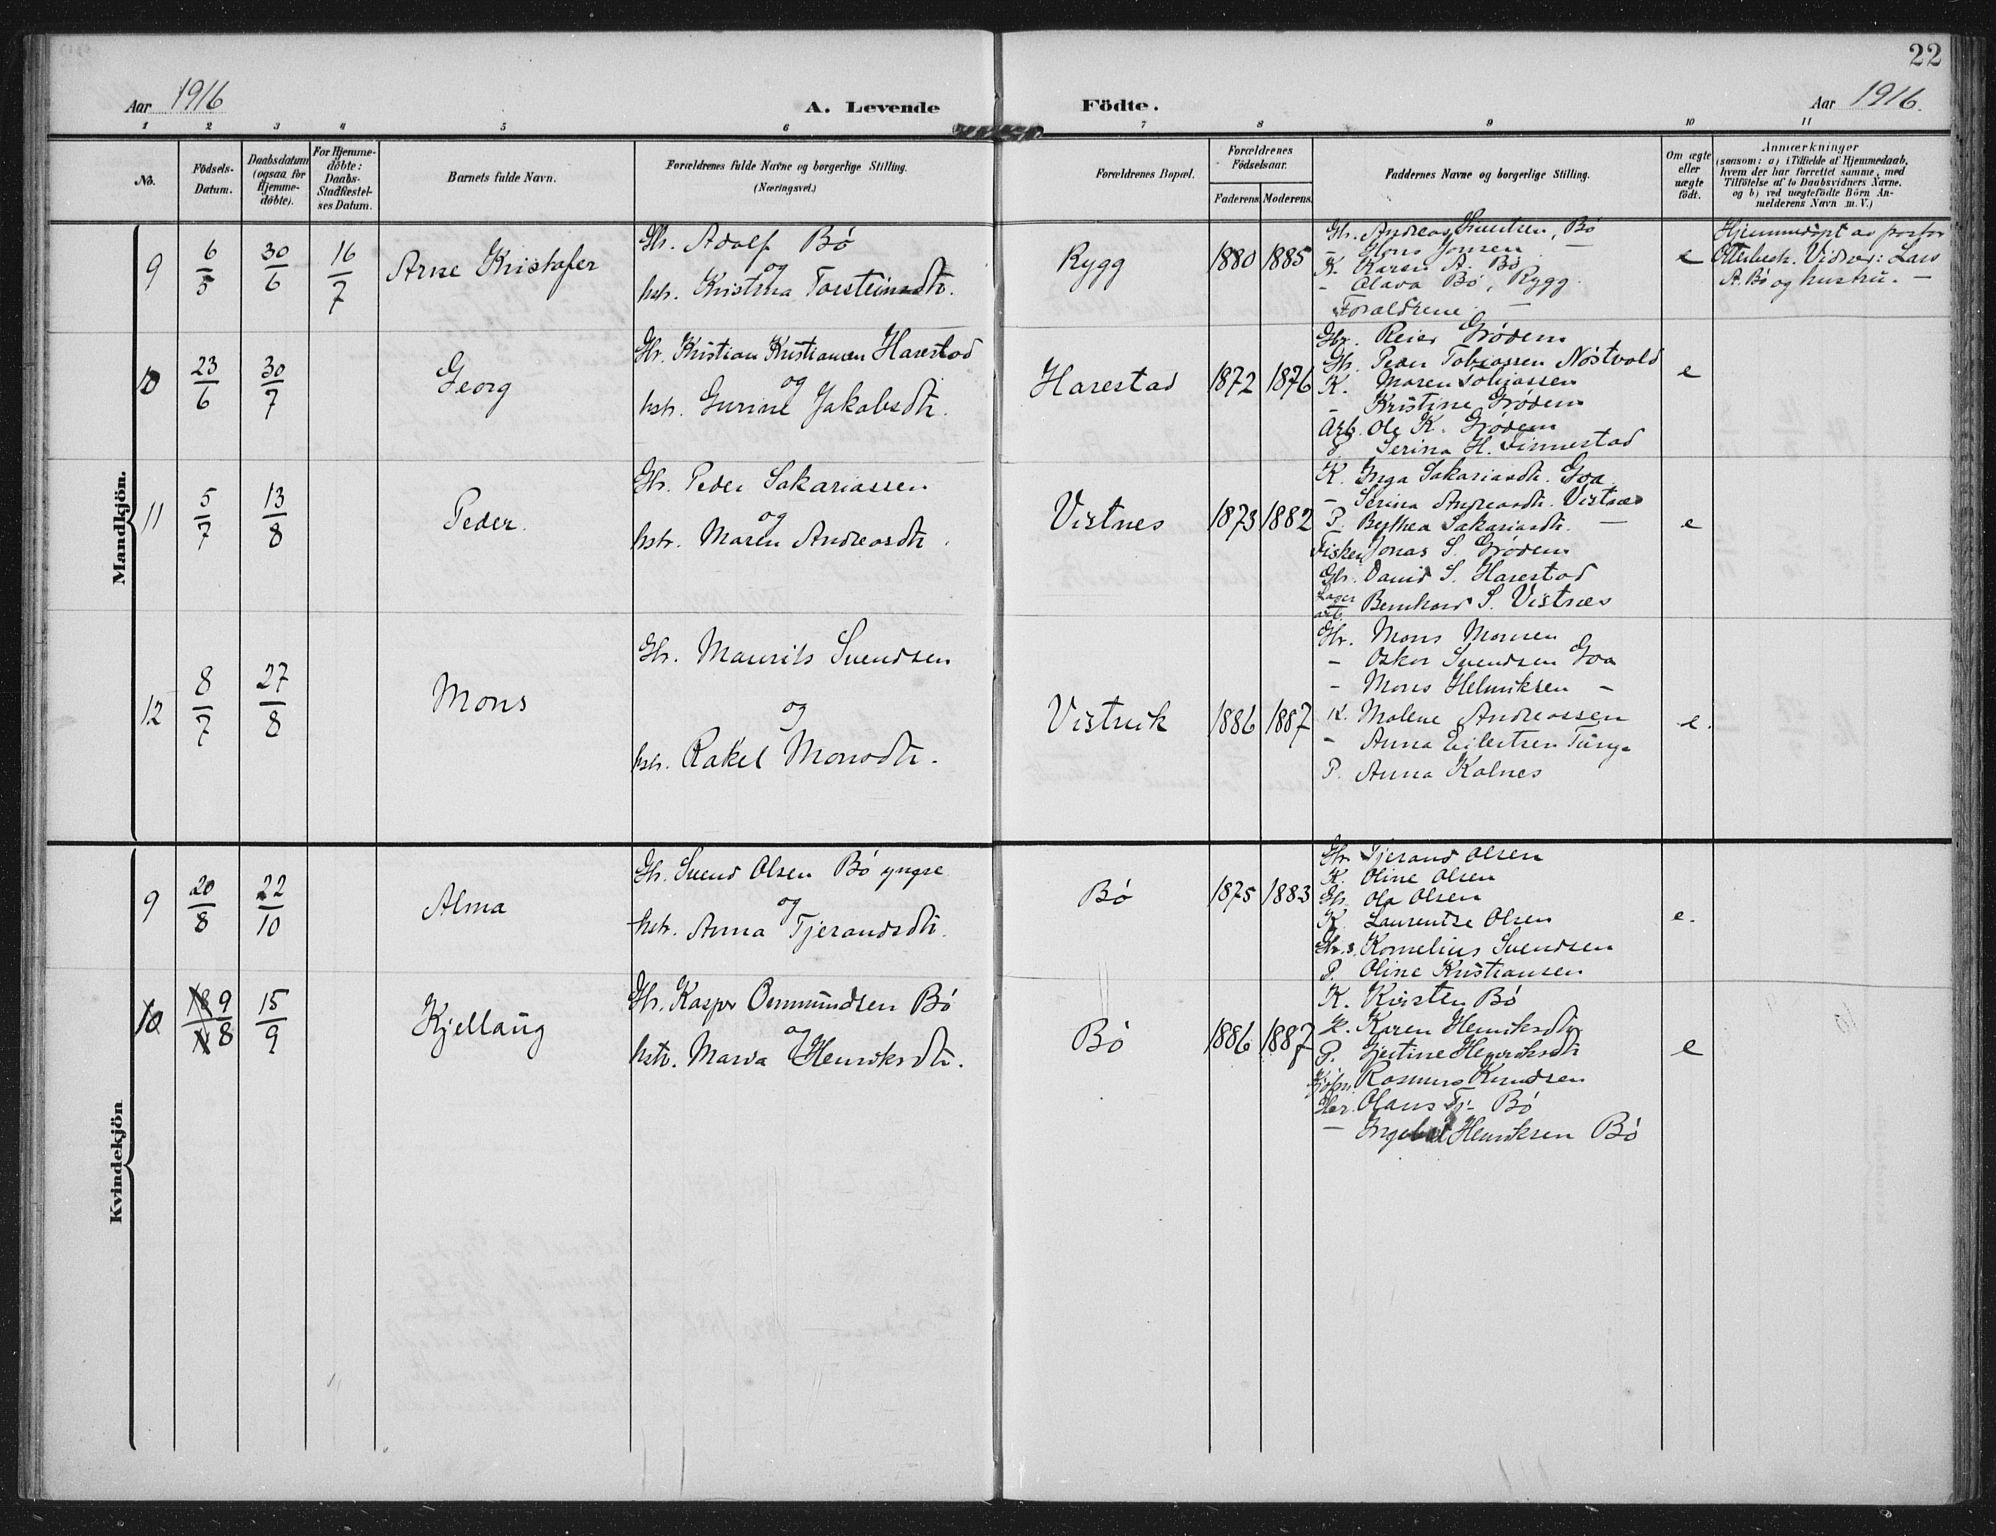 22
Aar 1916
A. Levende
Födte.
Aar 1916.
1 2 3 4 5 6 7 8 9 10 11
No.
Födsels-
Datum.
Daabsdatum
(ogsaa for
Hjemme-
döbte).
For Hjemme-
döbte:
Daabs-
Stadfæstel-
ses Datum.
Barnets fulde Navn.
Forældrenes fulde Navne og borgerlige Stilling.
(Næringsvei.)
Forældrenes Bopæl.
Forældrenes
Födselsaar.
Faderens
Moderens
Faddernes Navne og borgerlige Stilling.
Om ægte
eller
uægte
födt.
Anmærkninger
(saasom: a) i Tilfælde af Hjemmedaab,
hvem der har forrettet samme, med
Tilföielse af to Daabsvidners Navne.
og b) ved uægtefödte Börn An-
melderens Navn m. V.)
Mandkjön.
9
6/5
30/6
16/7
Arne Kristofer
Gbr. Adolf Bö
og
hstr. Kristina Torsteinsdtr.
Rygg
1880
1885
Gbr. Andreas Knutsen, Bö
- Mons Jonsen —
K. Karen A. Bö
- Olava Bö, Rygg.
Foraldrene —
e
Hjemmedöpt av pastor
Otterbech. Vidner: Lars
A. Bö og hustru. —
10
23/6
30/7
Georg
Gbr. Kristian Kristiansen Harestad
og
hstr. Gurine Jakobsdtr.
Harestad
1872
1876
Gbr. Reier Grödem
Gbr. Peder Tobiassen Nöstvold
K. Maren Tobiassen
- Kristine Grödem
Arb. Ole K. Grödem
P. Serina H. Finnestad
e
11
5/7
13/8
Peder.
Gbr. Peder Sakariassen
og
hstr. Maren Andreasdtr.
Vistnes
1873
1882
K. Inga Sakariasdtr. Goa
- Serina Andreasdtr. Vistnes
P. Berthea Sakariasdtr. —
Fisker Jonas S. Grödem
Gbr. David S. Harestad
Lager
arb. Bernhard S. Vistnes
e
12
8/7
27/8
Mons
Gbr. Maurits Svendsen
og
hstr. Rakel Monsdtr.
Vistvik
1886
1887
Gbr. Mons Monsen
- Oskar Svendsen Goa
- Mons Helmiksen -
K. Malene Andreassen
- Anna Eilertsen Tunge
P. Anna Kalnes
e.
Kvindekjön
9
20/8
22/10
Alma
Gbr. Svend Olsen Bö yngre
og
hstr. Anna Tjerandsdtr.
Bö
1875
1883
Gbr. Tjerand Olsen
K. Oline Olsen
Gbr. Ola Olsen
K. Laurentse Olsen
Gbr. s. Kornelius Svendsen
P. Oline Kristiansen
e.
10
9/8
15/9
Kjellaug
Gbr. Kasper Ommundsen Bö
og
hstr. Marta Henriksdtr.
Bö
1886
1887
K. Kirsten Bö
K. Karen Henriksdtr
P. Gjertine Henriksdtr
Kjöbm. Rasmus Knudsen
Gbr. Olaus Tj. Bö
- Ingebret Henriksen Bö
e